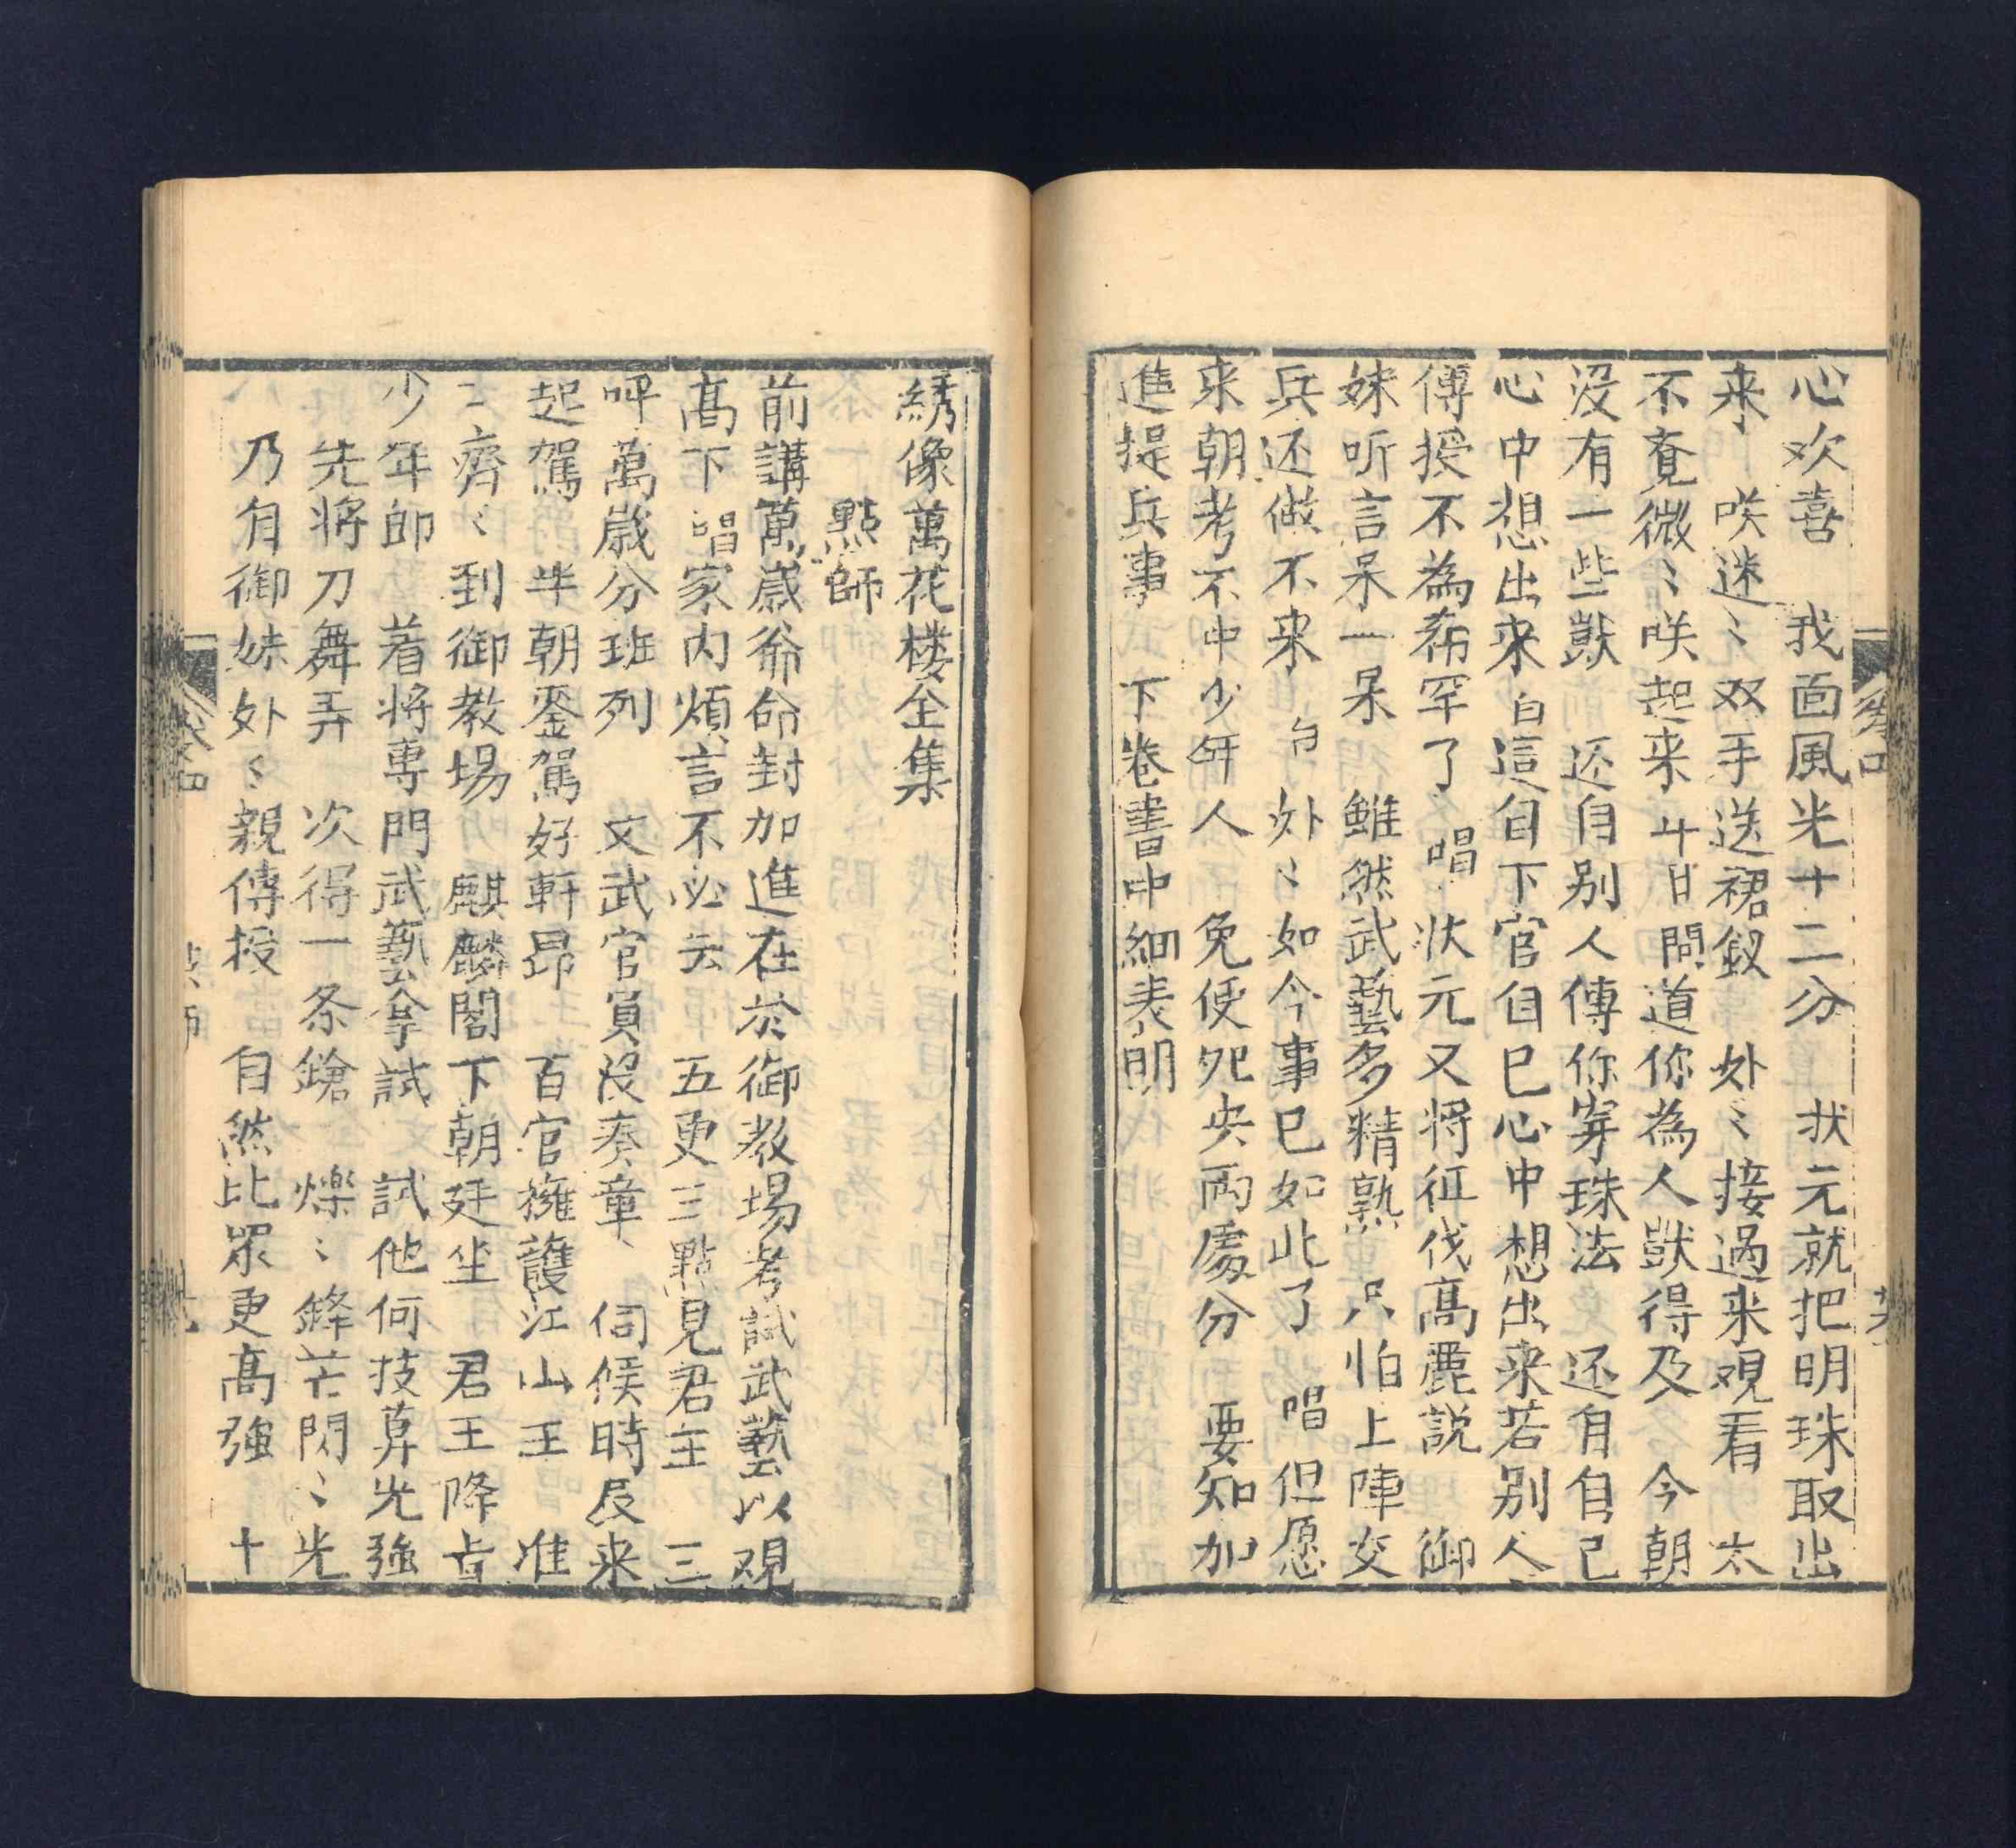 心欢喜　我面風光十二分　状元就把明珠取出
来　咲迷〻双手送裙釵　外〻接過来观看　太
不覔微〻咲起来斗日問道你為人獃得及　今朝
没有一些獃　还自别人傳你穿珠法　还有自己
心中想出来白這自下官自已心中想出来若别人
傳授不為希罕了　唱　状元又将征伐高麗説　御
妹听言呆一呆　雖然武藝多精熟　只怕上陣交
兵还做不来　白　外〻如今事已如此了　唱　但愿
来朝考不中少年人　免使夗央両處分　要知加
進提兵事　下卷書中細表明
卷四
綉像萬花楼全集
點師
前講萬歲爺命封加進在於御教場考試武藝以观
高下　唱家内煩言不必去　五更三點見君主　三
呼萬歲分班列　文武官員没奏章　伺候時辰来
起駕　半朝銮駕好軒昂　百官擁護江山王　准
二齊〻到御教場　麒麟閣下朝廷坐　君王降㫖
少年郎　着将専門武藝拿試　試他何技算光強
先将刀舞弄　次得一条鎗　爍〻鋒芒閃〻光
乃有御妹外〻親傳授　自然比眾更高強　十
卷四